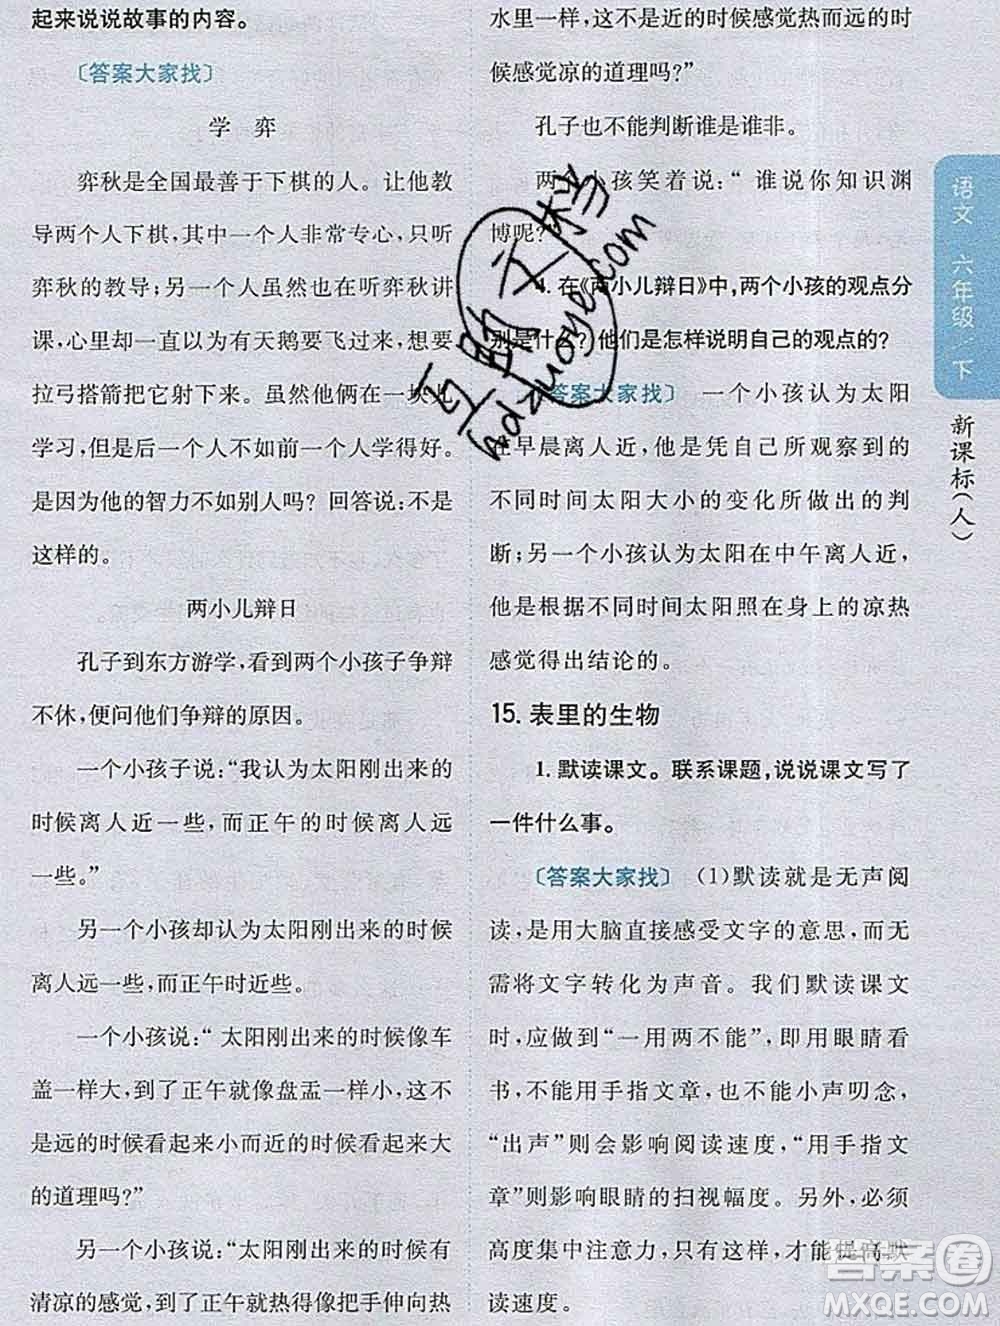 起来说说故事的内容。
〔答案大家找〕
学 弈
弈秋是全国最善于下棋的人。让他教
导两个人下棋,其中一个人非常专心,只听
弈秋的教导;另一个人虽然也在听弈秋讲
课,心里却一直以为有天鹅要飞过来,想要
拉弓搭箭把它射下来。虽然他俩在一块儿
学习,但第二个人不如前一个人学得好。
是因为他的智力不如别人吗? 回答说:不是
这样的。
两小儿辩日
孔子到东方游学,看到两个小孩子争辩
不休,便问他们争辩的原因。
一个小孩子说:“我认为太阳刚出来的
时候离人近一些,而正午的时候离人远
一些。”
另一个小孩却认为太阳刚出来的时候
离人远一些,而正午时近些。
一个小孩说:“ 太阳刚出来的时候像车
盖一样大,到了正午就像盘盂一样小,这不
是远的时候看起来小而近的时候看起来大
的道理吗?”
另一个小孩说:“太阳刚出来的时候有
清凉的感觉,到了正午就热得像把手伸向热
水里一样,这不是近的时候感觉热而远的时
候感觉凉的道理吗?”
孔子也不能判断谁是谁非。
两个小孩笑着说:“ 谁说你知识渊
博呢?”
4. 在《两小儿辩日》中,两个小孩的观点分
别是什么? 他们是怎样说明自己的观点的?
〔答案大家找〕 一个小孩认为太阳
在早晨离人近,他是凭自己所观察到的
不同时间太阳大小的变化所做出的判
断;另一个小孩认为太阳在中午离人近,
他是根据不同时间太阳照在身上的凉热
感觉得出结论的。
15. 表里的生物
1. 默读课文。联系课题,说说课文写了
一件什么事。
〔答案大家找〕 (1)默读就是无声阅
读,是用大脑直接感受文字的意思,而无
需将文字转化为声音。我们默读课文
时,应做到“一用两不能”,即用眼睛看
书,不能用手指文章,也不能小声叨念,
“出声”则会影响阅读速度,“用手指文
章”则影响眼睛的扫视幅度。另外,必须
高度集中注意力,只有这样,才能提高默
读速度。
语文 六年级/下
新课标(人)
答案圈
MXQE.COM